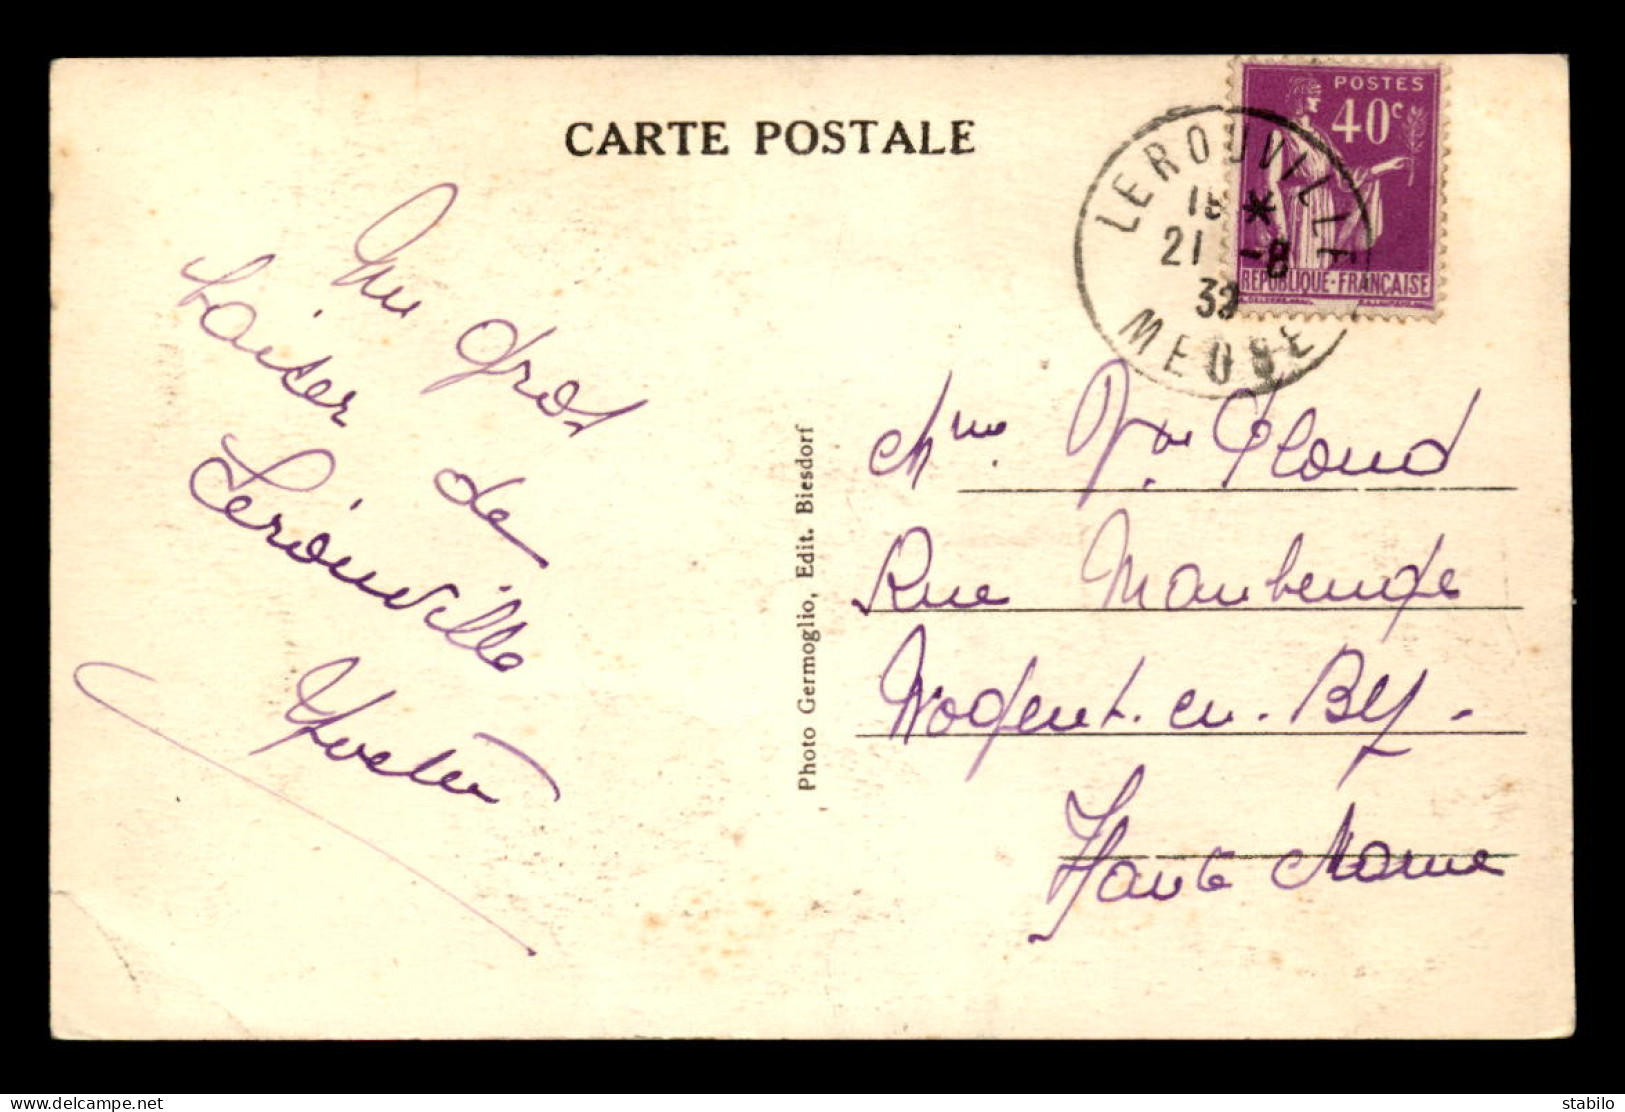 CARTE POSTALE
POSTES
40c
REPUBLIQUE-FRANÇAISE
LEROUVILLE
18 *
21 -8
MEUSE
Un gros
baiser
de
Lérouville
Yvette
Photo Germoglio, Edit. Biesdorf
Mme Vve
Rue Maubeuge
Nogent. en. By.
Haute Marne
delcampe.net
stabilo